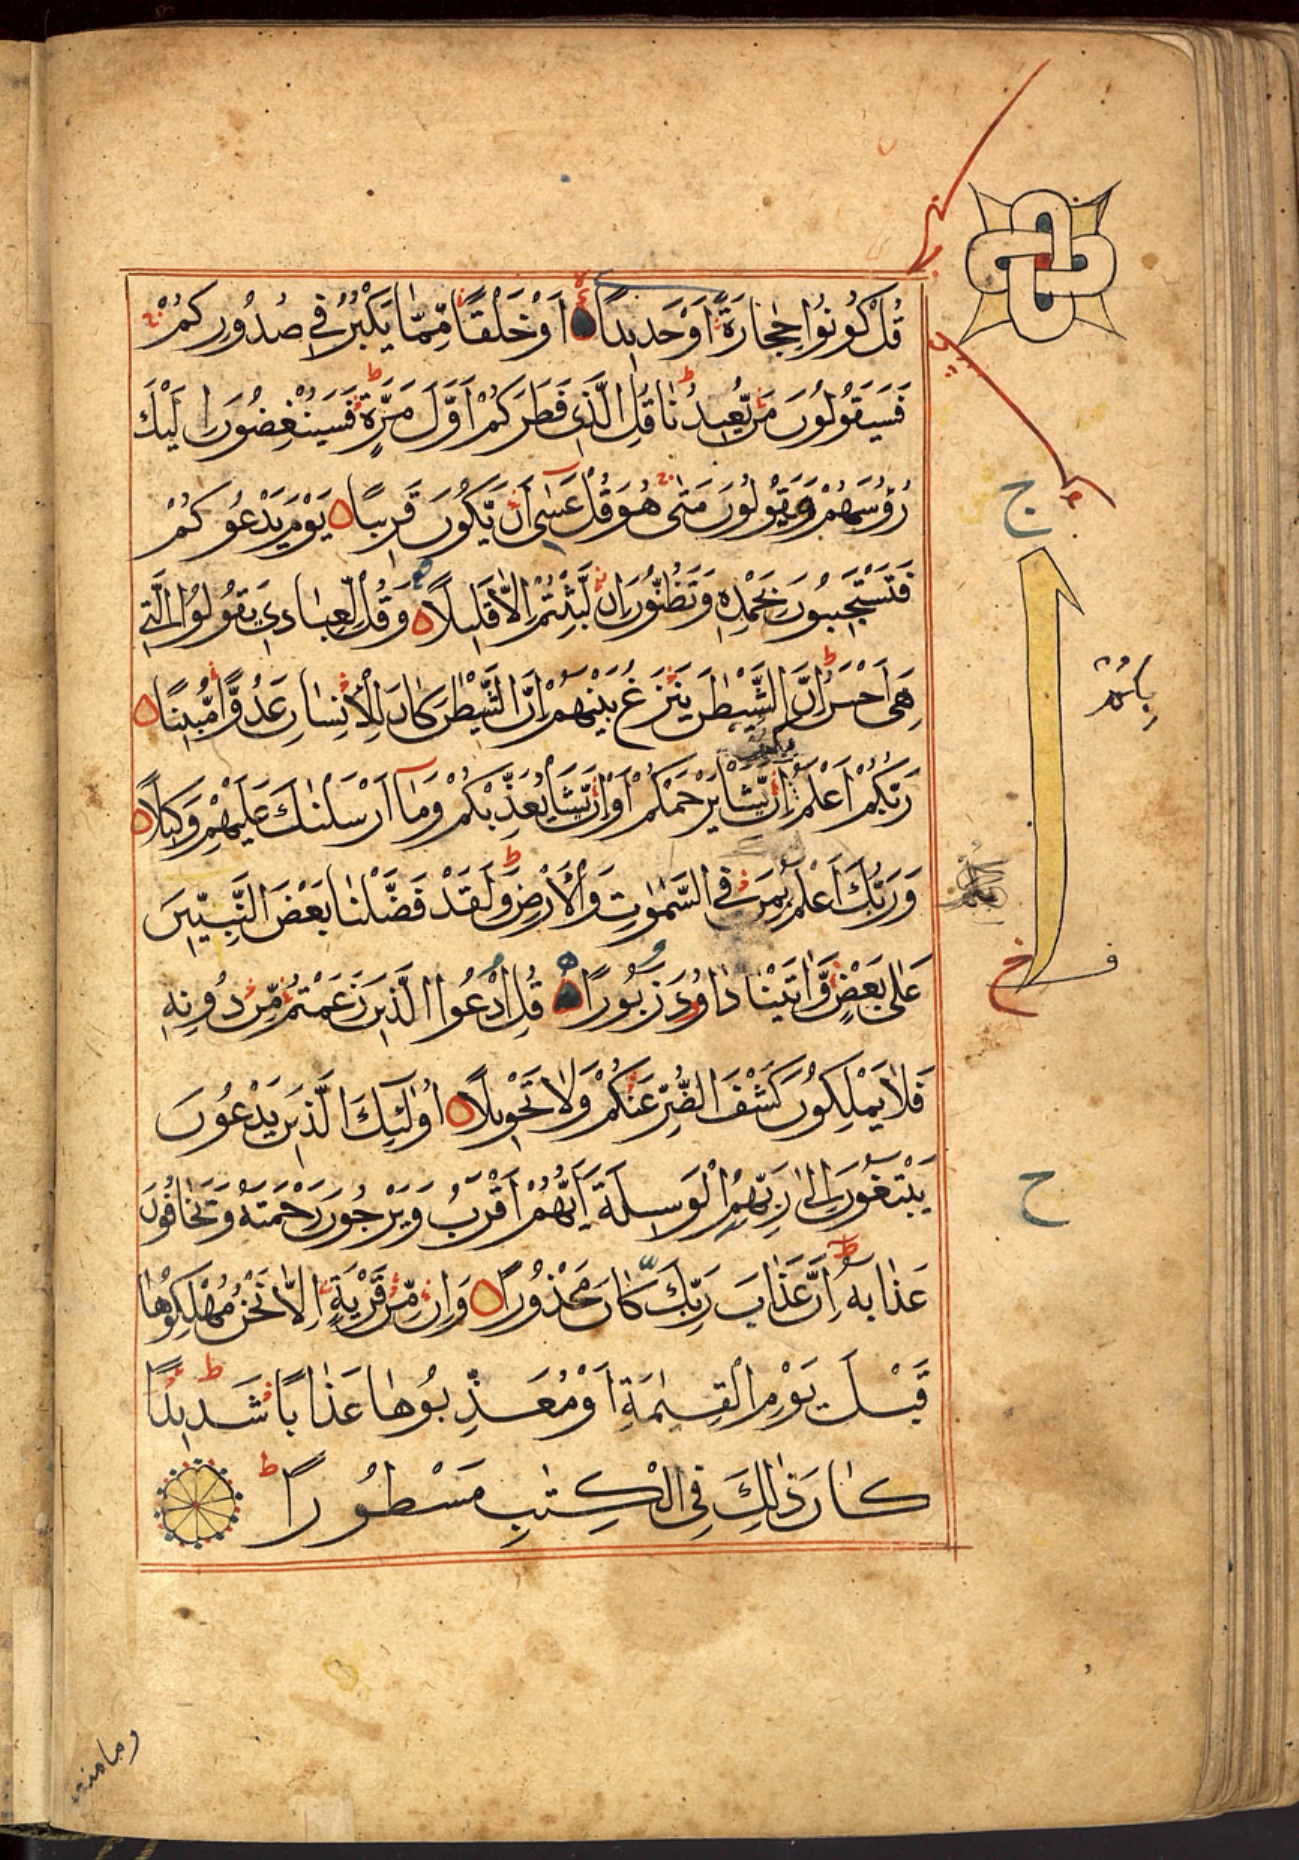 قُلْ كُونُوا حِجَارَةً أَوْ حَدِيدًا ه اَوْ خَلْقًا مِّمَّا يَكْبُرُ فِي صُدُورِكُمْ
فَسَيَقُولُونَ مَنْ يُّعِيدُنَا قُلِ الَّذِي فَطَرَكُمْ اَوَّلَ مَرَّةٍ فَسَيُنْغِضُونَ اِلَيْكَ
رُؤُسَهُمْ وَيَقُولُونَ مَتٰى هُوَ قُلْ عَسٰى اَنْ يَّكُونَ قَرِيبًا ه يَوْمَ يَدْعُوكُمْ
فَتَسْتَجِيبُونَ بِحَمْدِهٖ وَتَظُنُّونَ اِنْ لَّبِثْتُمْ اِلَّا قَلِيلًا ه وَقُلْ لِّعِبَادِي يَقُولُوا الَّتِي
هِيَ اَحْسَنُ اِنَّ الشَّيْطٰنَ يَنْزَغُ بَيْنَهُمْ اِنَّ الشَّيْطٰنَ كَانَ لِلْاِنْسَانِ عَدُوًّا مُّبِينًا ه
رَبُّكُمْ اَعْلَمُ بِكُمْ اِنْ يَّشَأْ يَرْحَمْكُمْ اَوْ اِنْ يَّشَأْ يُعَذِّبْكُمْ وَمَا اَرْسَلْنٰكَ عَلَيْهِمْ وَكِيلًا ه
وَرَبُّكَ اَعْلَمُ بِمَنْ فِي السَّمٰوٰتِ وَالْاَرْضِ وَلَقَدْ فَضَّلْنَا بَعْضَ النَّبِيّٖنَ
عَلٰى بَعْضٍ وَّاٰتَيْنَا دَاوُودَ زَبُورًا ه قُلِ ادْعُوا الَّذِينَ زَعَمْتُمْ مِّنْ دُونِهٖ
فَلَا يَمْلِكُونَ كَشْفَ الضُّرِّ عَنْكُمْ وَلَا تَحْوِيلًا ه اُولٰئِكَ الَّذِينَ يَدْعُونَ
يَبْتَغُونَ اِلٰى رَبِّهِمُ الْوَسِيلَةَ اَيُّهُمْ اَقْرَبُ وَيَرْجُونَ رَحْمَتَهٗ وَيَخَافُونَ
عَذَابَهٗ اِنَّ عَذَابَ رَبِّكَ كَانَ مَحْذُورًا ه وَاِنْ مِّنْ قَرْيَةٍ اِلَّا نَحْنُ مُهْلِكُوهَا
قَبْلَ يَوْمِ الْقِيٰمَةِ اَوْ مُعَذِّبُوهَا عَذَابًا شَدِيدًا
كَانَ ذٰلِكَ فِي الْكِتٰبِ مَسْطُورًا
ج
ح
وما منعنا